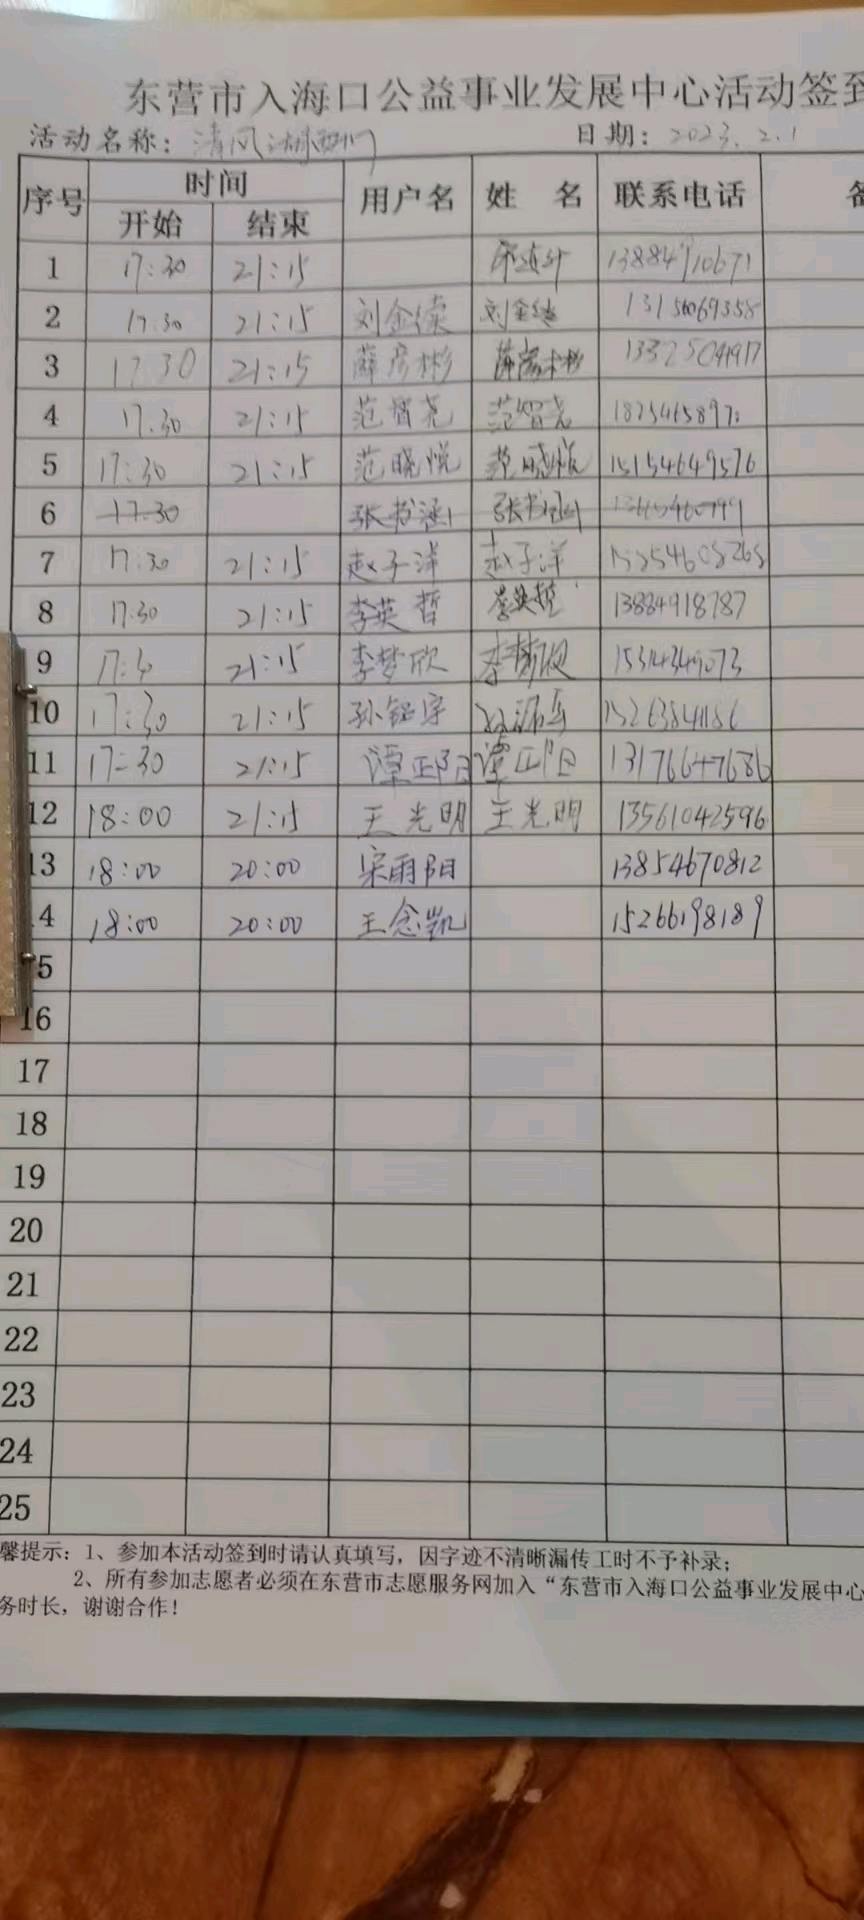 东营市入海口公益事业发展中心活动签到
活动名称：清风湖 日期：2023.2.1
序号 时间 用户名 姓 名 联系电话 备
开始 结束
1 17:30 21:15 13884910671
2 17:30 21:15 刘金续 刘金续 13156069358
3 17 30 21:15 薛彦彬 薛彦彬 13325041917
4 17.30 21:15 范智尧 范智尧
5 17:30 21:15 范晓悦 范晓悦 15154649576
6 17.30 张书涵 张书涵
7 17:30 21:15 赵子洋 赵子洋
8 17.30 21:15 李英哲 李英哲 13884918787
9 21:15 李梦欣 李梦欣 15314349073
10 17:30 21:15 15263841186
11 17:30 21:15 谭邱阳 谭邱阳 13176647686
12 18:00 21:15 王光明 王光明 13561042596
13 18:00 20:00 宋雨阳 13854670812
14 18:00 20:00 王念凯 15266198189
15
16
17
18
19
20
21
22
23
24
25
馨提示：1、参加本活动签到时请认真填写，因字迹不清晰漏传工时不予补录；
2、所有参加志愿者必须在东营市志愿服务网加入“东营市入海口公益事业发展中心
务时长，谢谢合作！